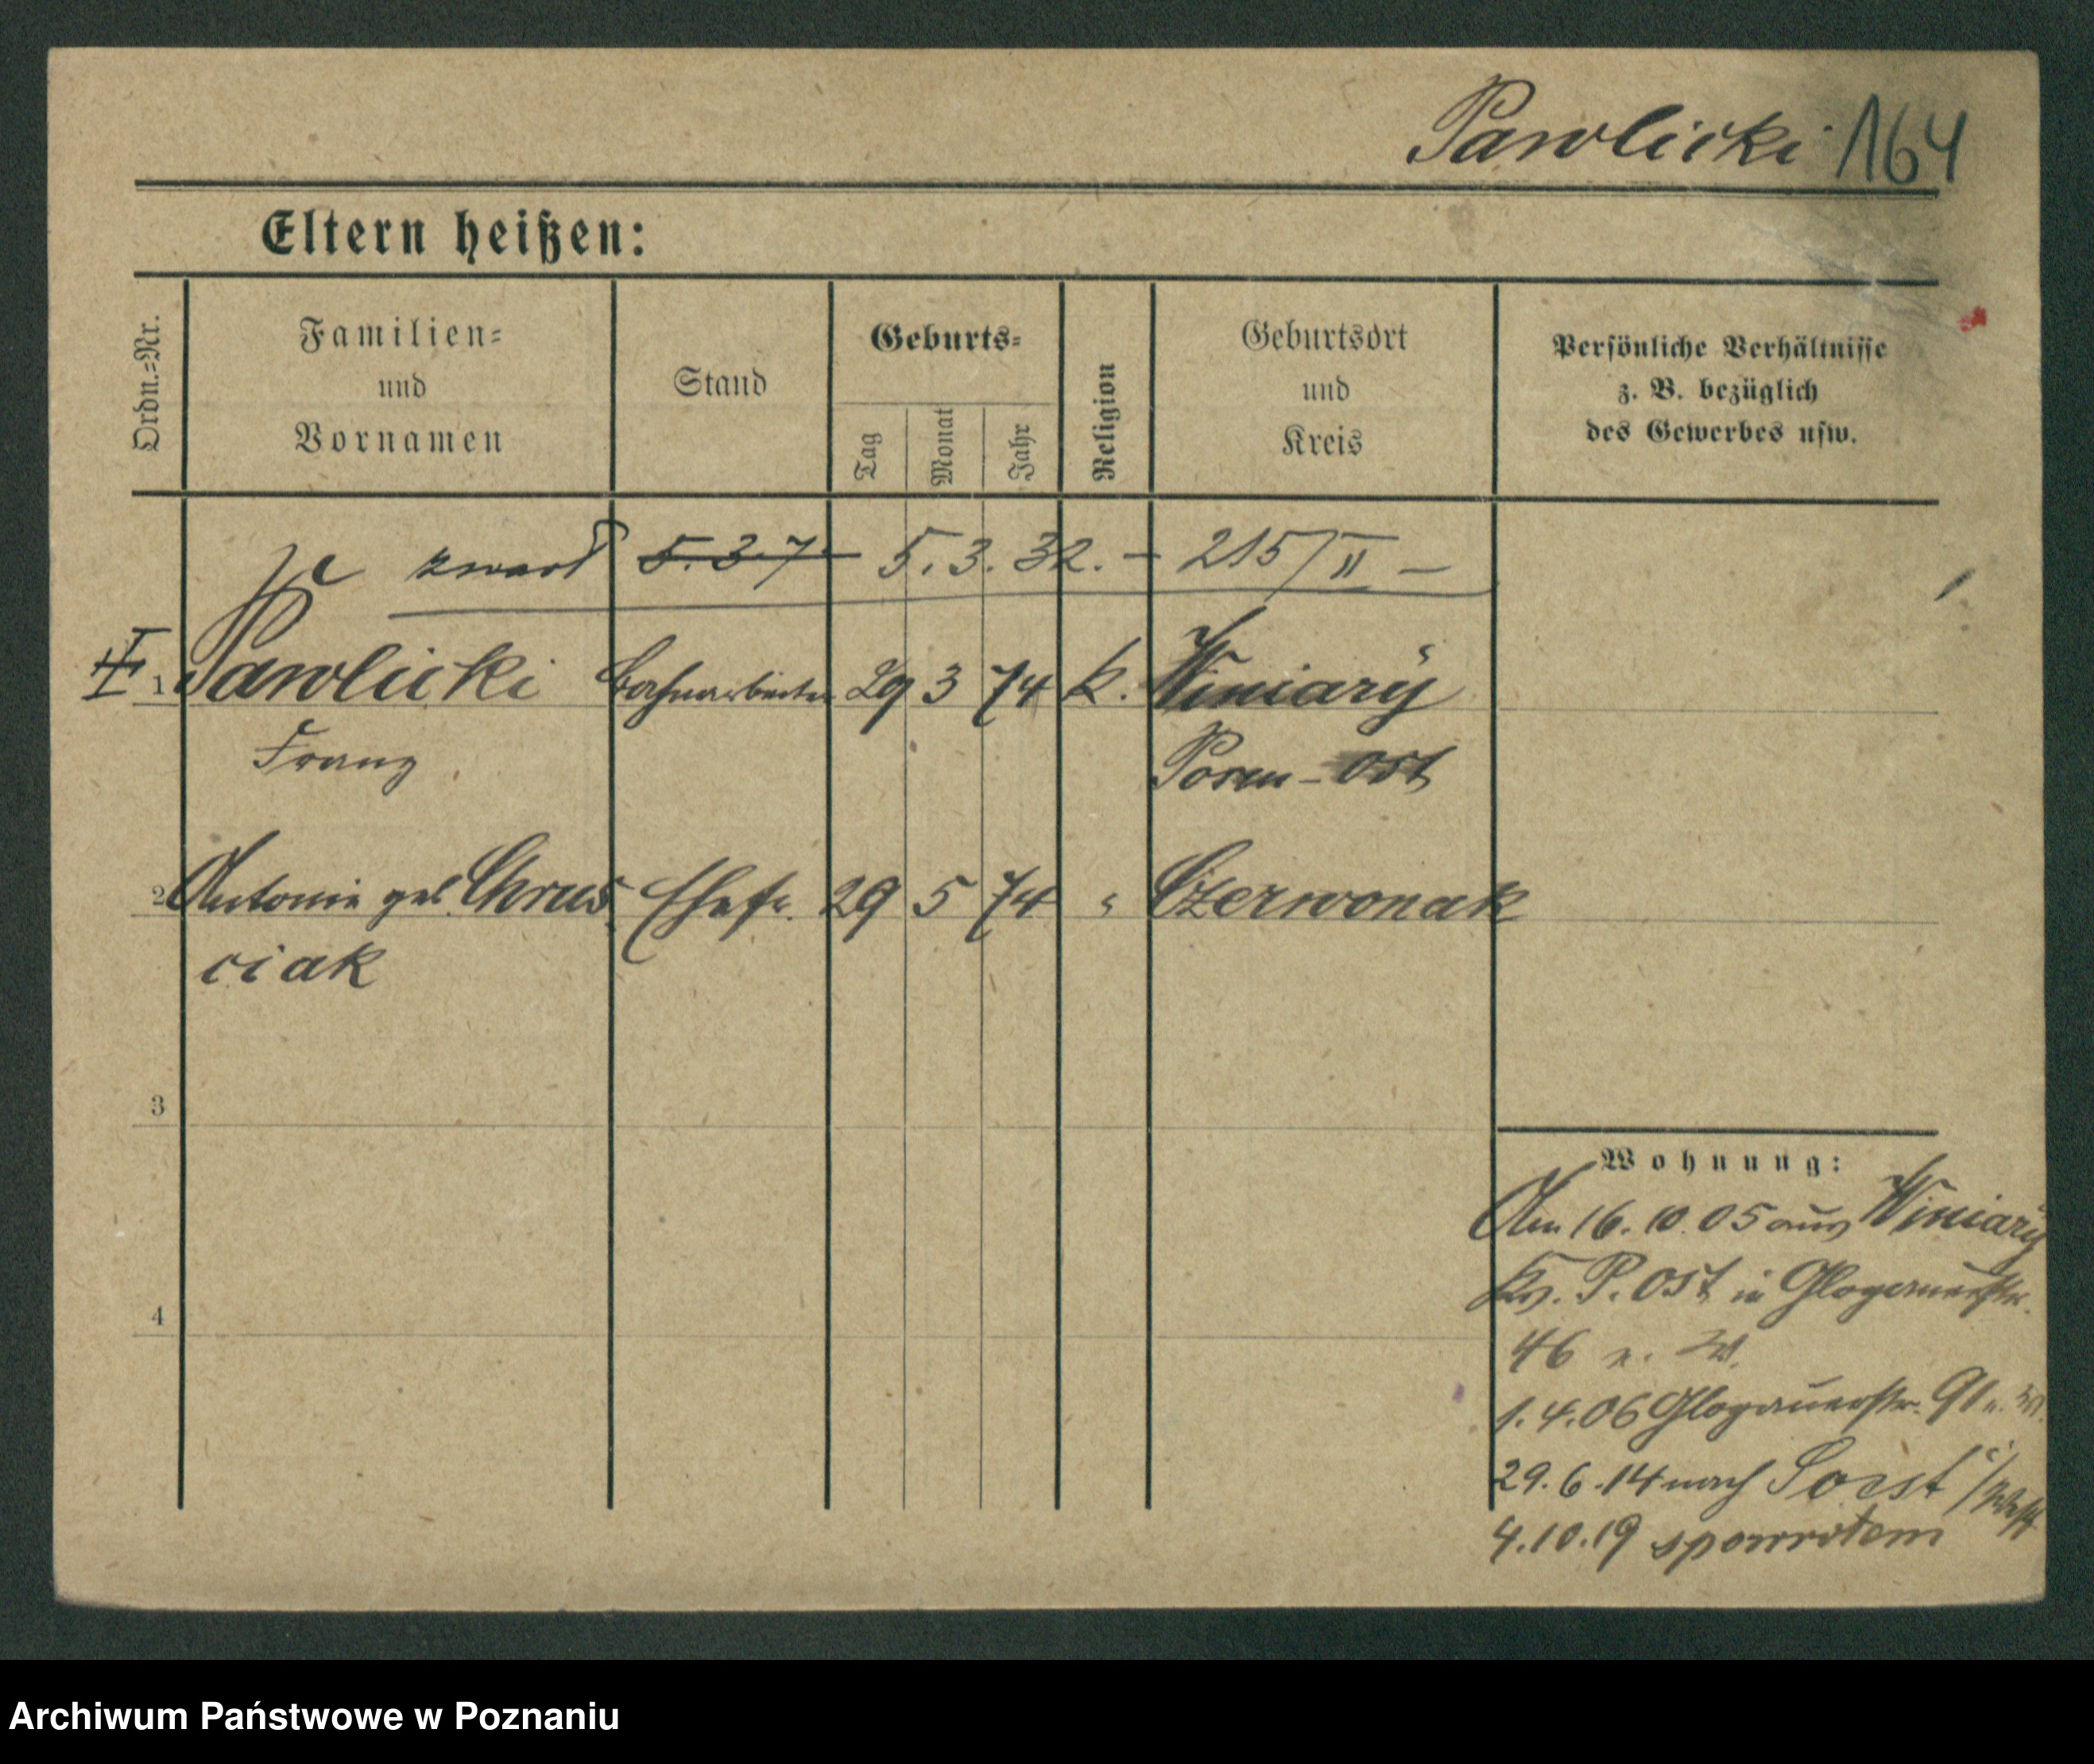 Pawlicki 164
Eltern heißen:
Ordn.=Nr.
Familien=
und
Vornamen
Stand
Geburts=
Tag
Monat
Jahr
Religion
Geburtsort
und
Kreis
Persönliche Verhältnisse
z. B. bezüglich
des Gewerbes usw.
zmarł 5.3.7 5.3.32. – 215/II –
1 Pawlicki Bahnarbeiter 29 3 74 k. Winiary
Franz Posen-Ost
2 Antonie geb. Chrus Ehefr. 29 5 74 " Czerwonak
ciak
3
4
Wohnung:
Am 16.10.05 aus Winiary
Krs. P. Ost in Glogauerstr.
46 n. W.
1.4.06 Glogauerstr. 91 n. W.
29.6.14 nach Soest i/Westf
4.10.19 spowrotem
Archiwum Państwowe w Poznaniu